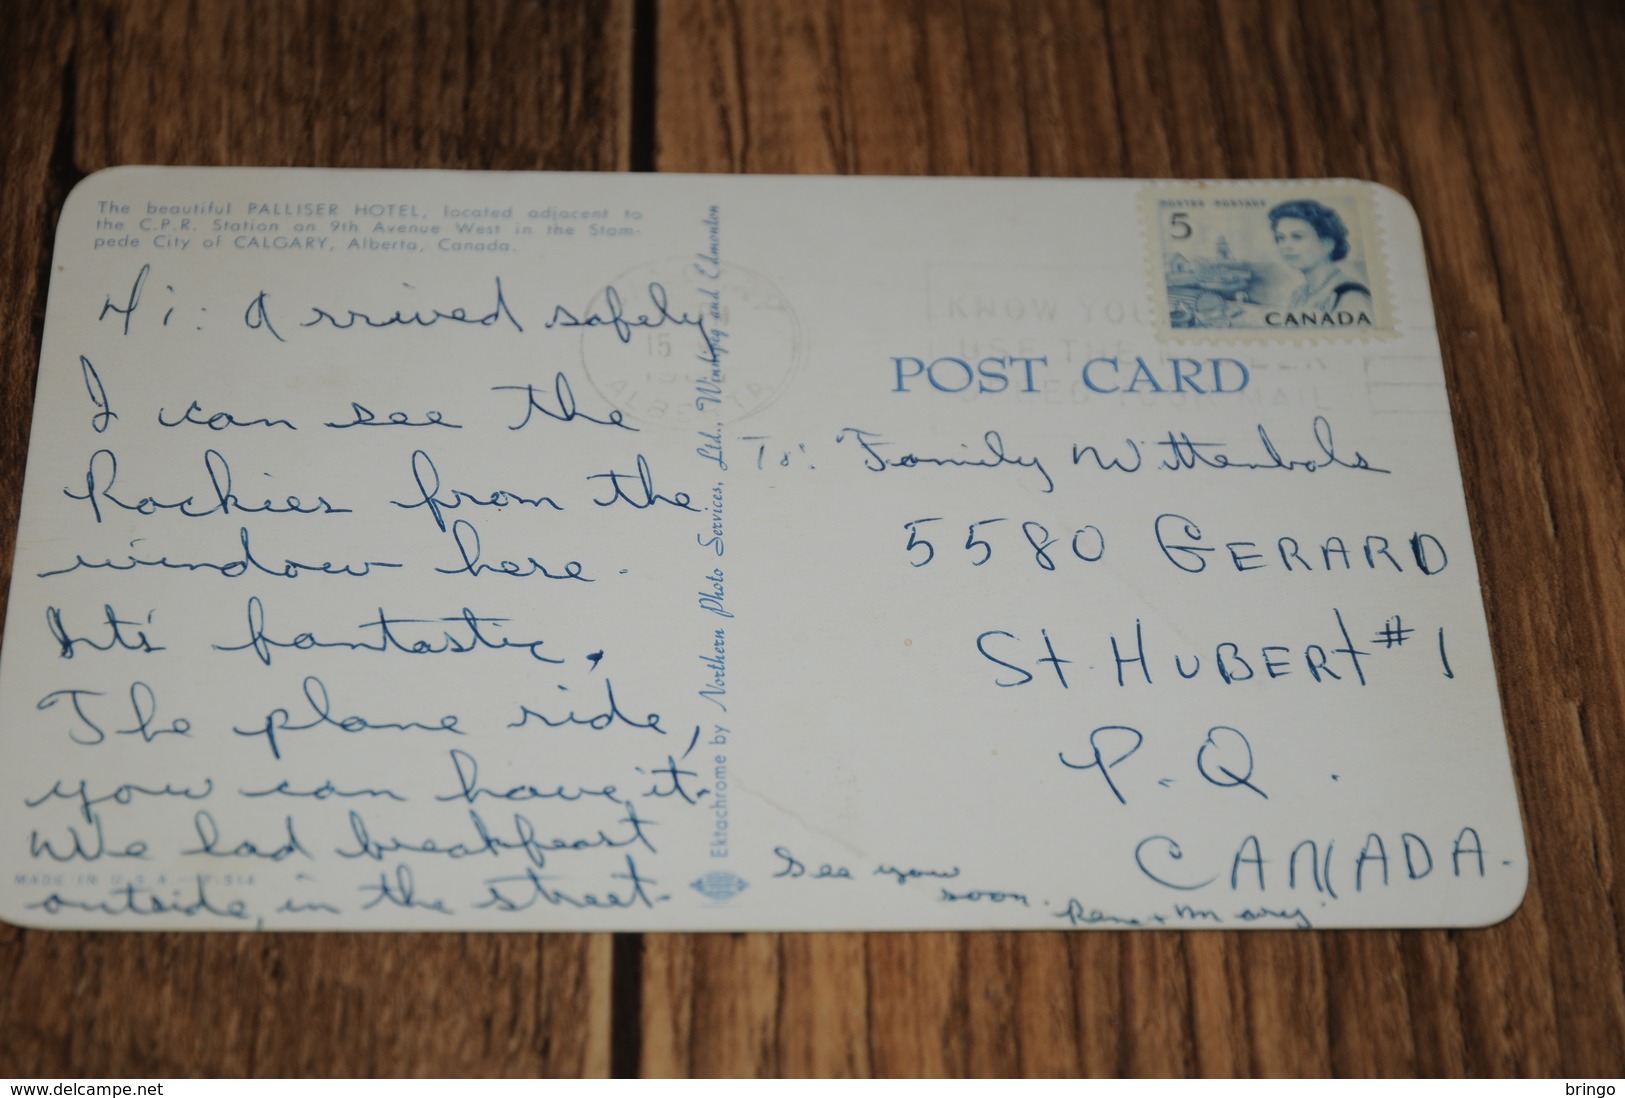 The beautiful PALLISER HOTEL, located adjacent to
the C.P.R. Station on 9th Avenue West in the Stam-
pede City of CALGARY, Alberta, Canada.
Hi: Arrived safely
I can see the
Rockies from the
window here.
It's fantastic,
The plane ride,
you can have it.
We had breakfeast
outside, in the street.
MADE IN U.S.A.
Ektachrome by Northern Photo Services, Ltd., Winnipeg and Edmonton
POSTES POSTAGE
5
CANADA
15
KNOW YOU
USE THE
MAIL
POST CARD
To: Family Wittenbols
5580 GERARD
St. HUBERT #1
P.Q.
CANADA.
See you
soon.
Rene + Mary.
delcampe.net
bringo